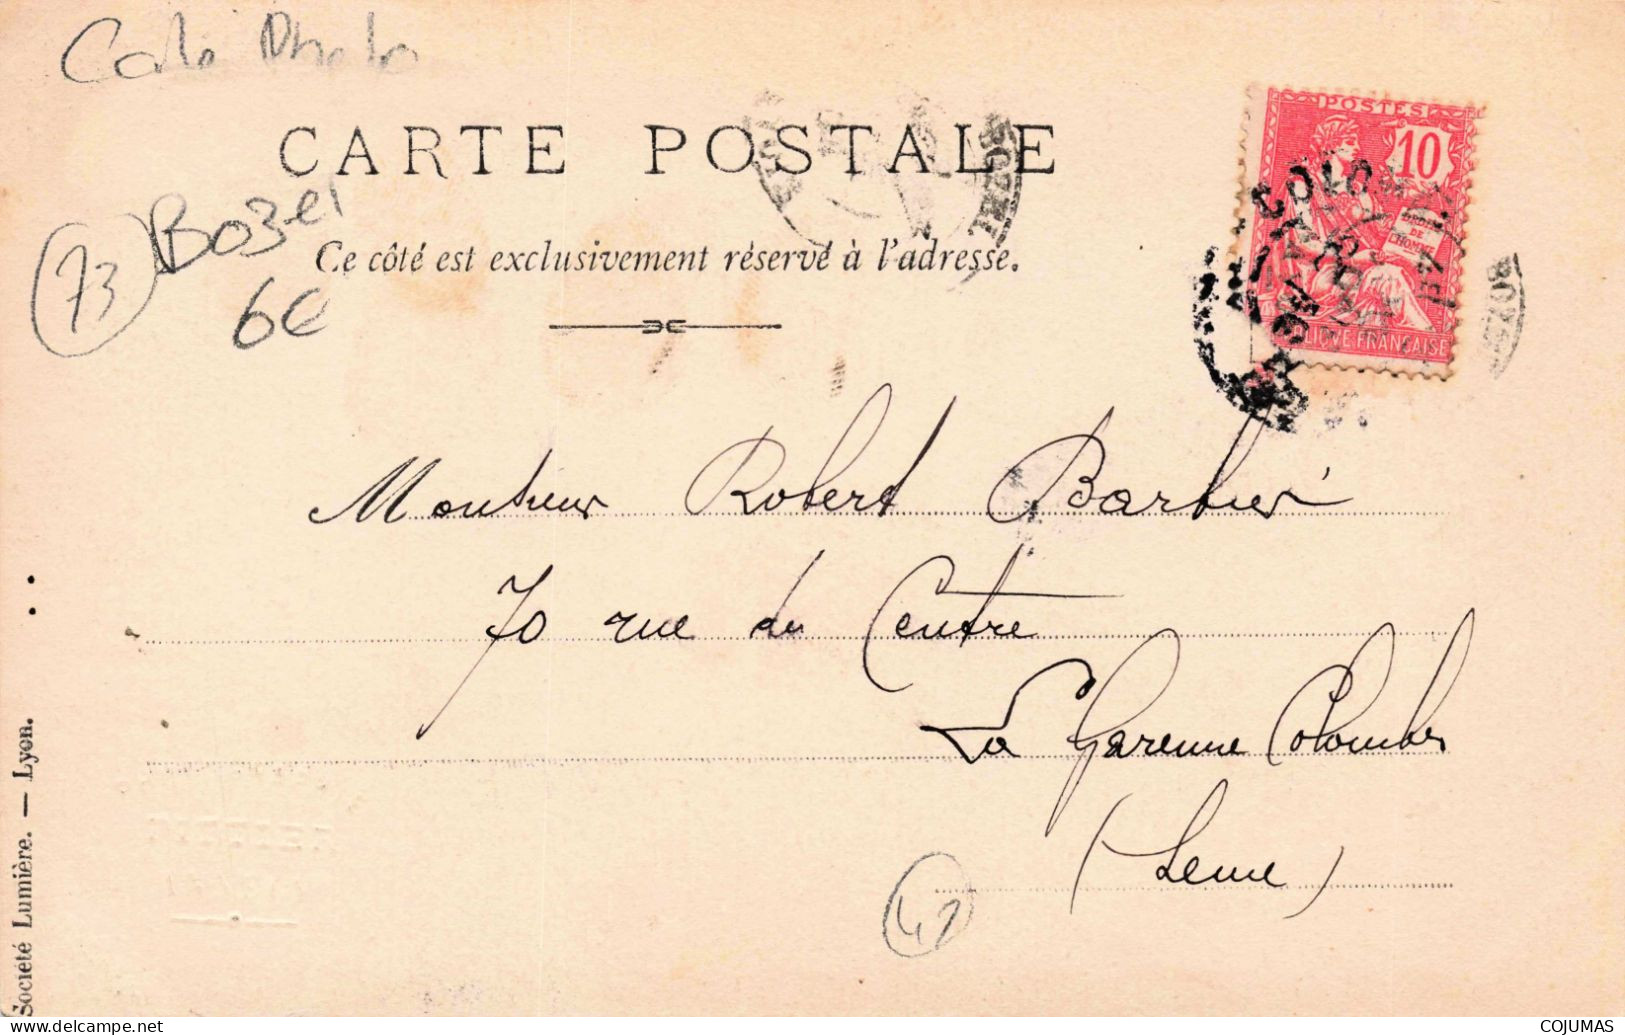 Carte Photo
CARTE POSTALE
73 Bozel
6€
Ce côté est exclusivement réservé à l'adresse.
POSTES
10
DROITS DE L'HOMME
RÉPUBLIQUE FRANÇAISE
BOZEL
Monsieur Robert Barbier
70 rue du Centre
La Garenne Colombes
(Seine)
42
Société Lumière. — Lyon.
www.delcampe.net
COJUMAS